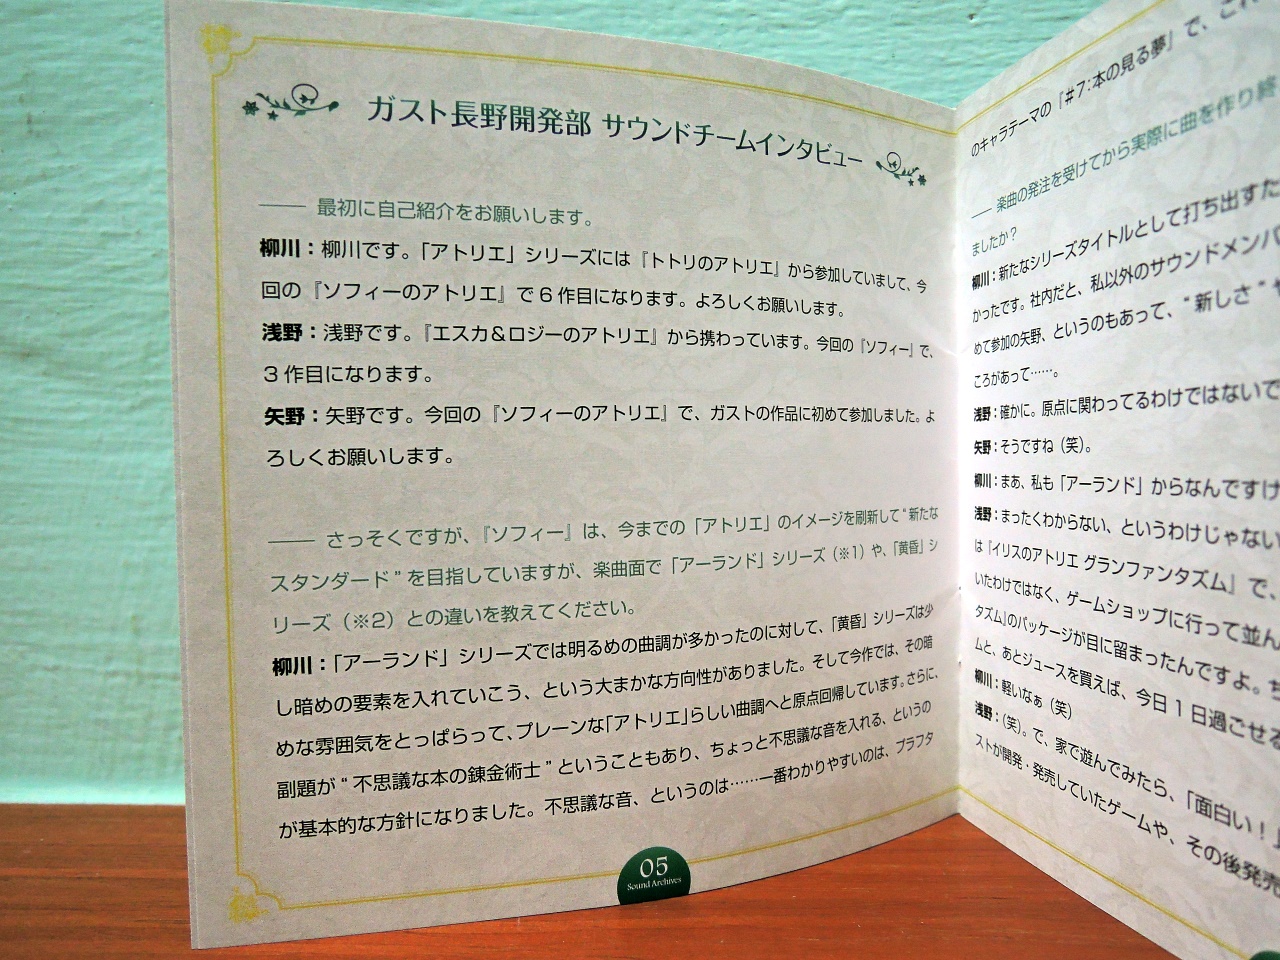 ガスト長野開発部 サウンドチームインタビュー
―― 最初に自己紹介をお願いします。
柳川：柳川です。「アトリエ」シリーズには『トトリのアトリエ』から参加していまして、今
回の『ソフィーのアトリエ』で6作目になります。よろしくお願いします。
浅野：浅野です。『エスカ＆ロジーのアトリエ』から携わっています。今回の『ソフィー』で、
3作目になります。
矢野：矢野です。今回の『ソフィーのアトリエ』で、ガストの作品に初めて参加しました。よ
ろしくお願いします。
―― さっそくですが、『ソフィー』は、今までの「アトリエ」のイメージを刷新して“新たな
スタンダード”を目指していますが、楽曲面で「アーランド」シリーズ（※1）や、「黄昏」シ
リーズ（※2）との違いを教えてください。
柳川：「アーランド」シリーズでは明るめの曲調が多かったのに対して、「黄昏」シリーズは少
し暗めの要素を入れていこう、という大まかな方向性がありました。そして今作では、その暗
めな雰囲気をとっぱらって、プレーンな「アトリエ」らしい曲調へと原点回帰しています。さらに、
副題が“不思議な本の錬金術士”ということもあり、ちょっと不思議な音を入れる、というの
が基本的な方針になりました。不思議な音、というのは……一番わかりやすいのは、プラフタ
05
Sound Archives
のキャラテーマの「#7：本の見る夢」で、これ
―― 楽曲の発注を受けてから実際に曲を作り終
ましたか？
柳川：新たなシリーズタイトルとして打ち出すた
かったです。社内だと、私以外のサウンドメンバ
めて参加の矢野、というのもあって、“新しさ”や
ころがあって……。
浅野：確かに。原点に関わってるわけではないで
矢野：そうですね（笑）。
柳川：まあ、私も「アーランド」からなんですけ
浅野：まったくわからない、というわけじゃない
は『イリスのアトリエ グランファンタズム』で、
いたわけではなく、ゲームショップに行って並ん
タズム』のパッケージが目に留まったんですよ。
ムと、あとジュースを買えば、今日1日過ごせる
柳川：軽いなぁ（笑）
浅野：（笑）。で、家で遊んでみたら、「面白い！」
ストが開発・発売していたゲームや、その後発売